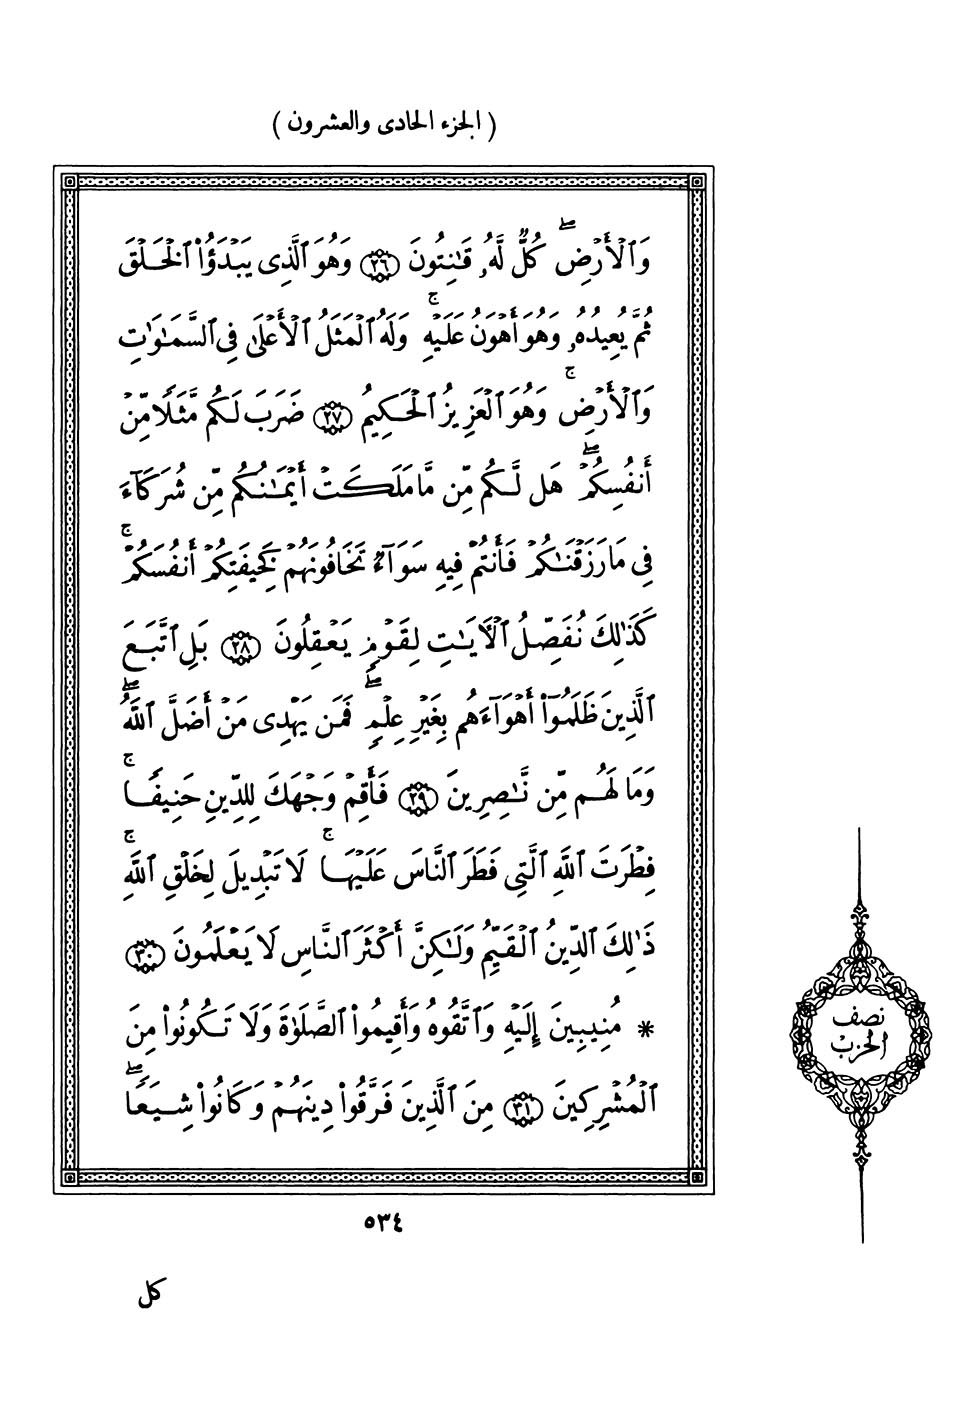 ( الجزء الحادى والعشرون )
وَٱلْأَرْضِۖ كُلٌّ لَّهُۥ قَٰنِتُونَ ٢٦ وَهُوَ ٱلَّذِى يَبْدَؤُا۟ ٱلْخَلْقَ
ثُمَّ يُعِيدُهُۥ وَهُوَ أَهْوَنُ عَلَيْهِۚ وَلَهُ ٱلْمَثَلُ ٱلْأَعْلَىٰ فِى ٱلسَّمَٰوَٰتِ
وَٱلْأَرْضِۚ وَهُوَ ٱلْعَزِيزُ ٱلْحَكِيمُ ٢٧ ضَرَبَ لَكُم مَّثَلًا مِّنْ
أَنفُسِكُمْۖ هَل لَّكُم مِّن مَّا مَلَكَتْ أَيْمَٰنُكُم مِّن شُرَكَآءَ
فِى مَا رَزَقْنَٰكُمْ فَأَنتُمْ فِيهِ سَوَآءٌ تَخَافُونَهُمْ كَخِيفَتِكُمْ أَنفُسَكُمْۚ
كَذَٰلِكَ نُفَصِّلُ ٱلْءَايَٰتِ لِقَوْمٍ يَعْقِلُونَ ٢٨ بَلِ ٱتَّبَعَ
ٱلَّذِينَ ظَلَمُوٓا۟ أَهْوَآءَهُم بِغَيْرِ عِلْمٍۖ فَمَن يَهْدِى مَنْ أَضَلَّ ٱللَّهُۖ
وَمَا لَهُم مِّن نَّٰصِرِينَ ٢٩ فَأَقِمْ وَجْهَكَ لِلدِّينِ حَنِيفًاۚ
فِطْرَتَ ٱللَّهِ ٱلَّتِى فَطَرَ ٱلنَّاسَ عَلَيْهَاۚ لَا تَبْدِيلَ لِخَلْقِ ٱللَّهِۚ
ذَٰلِكَ ٱلدِّينُ ٱلْقَيِّمُ وَلَٰكِنَّ أَكْثَرَ ٱلنَّاسِ لَا يَعْلَمُونَ ٣٠
* مُنِيبِينَ إِلَيْهِ وَٱتَّقُوهُ وَأَقِيمُوا۟ ٱلصَّلَوٰةَ وَلَا تَكُونُوا۟ مِنَ
ٱلْمُشْرِكِينَ ٣١ مِنَ ٱلَّذِينَ فَرَّقُوا۟ دِينَهُمْ وَكَانُوا۟ شِيَعًاۖ
نصف
الحزب
٥٣٤
كل